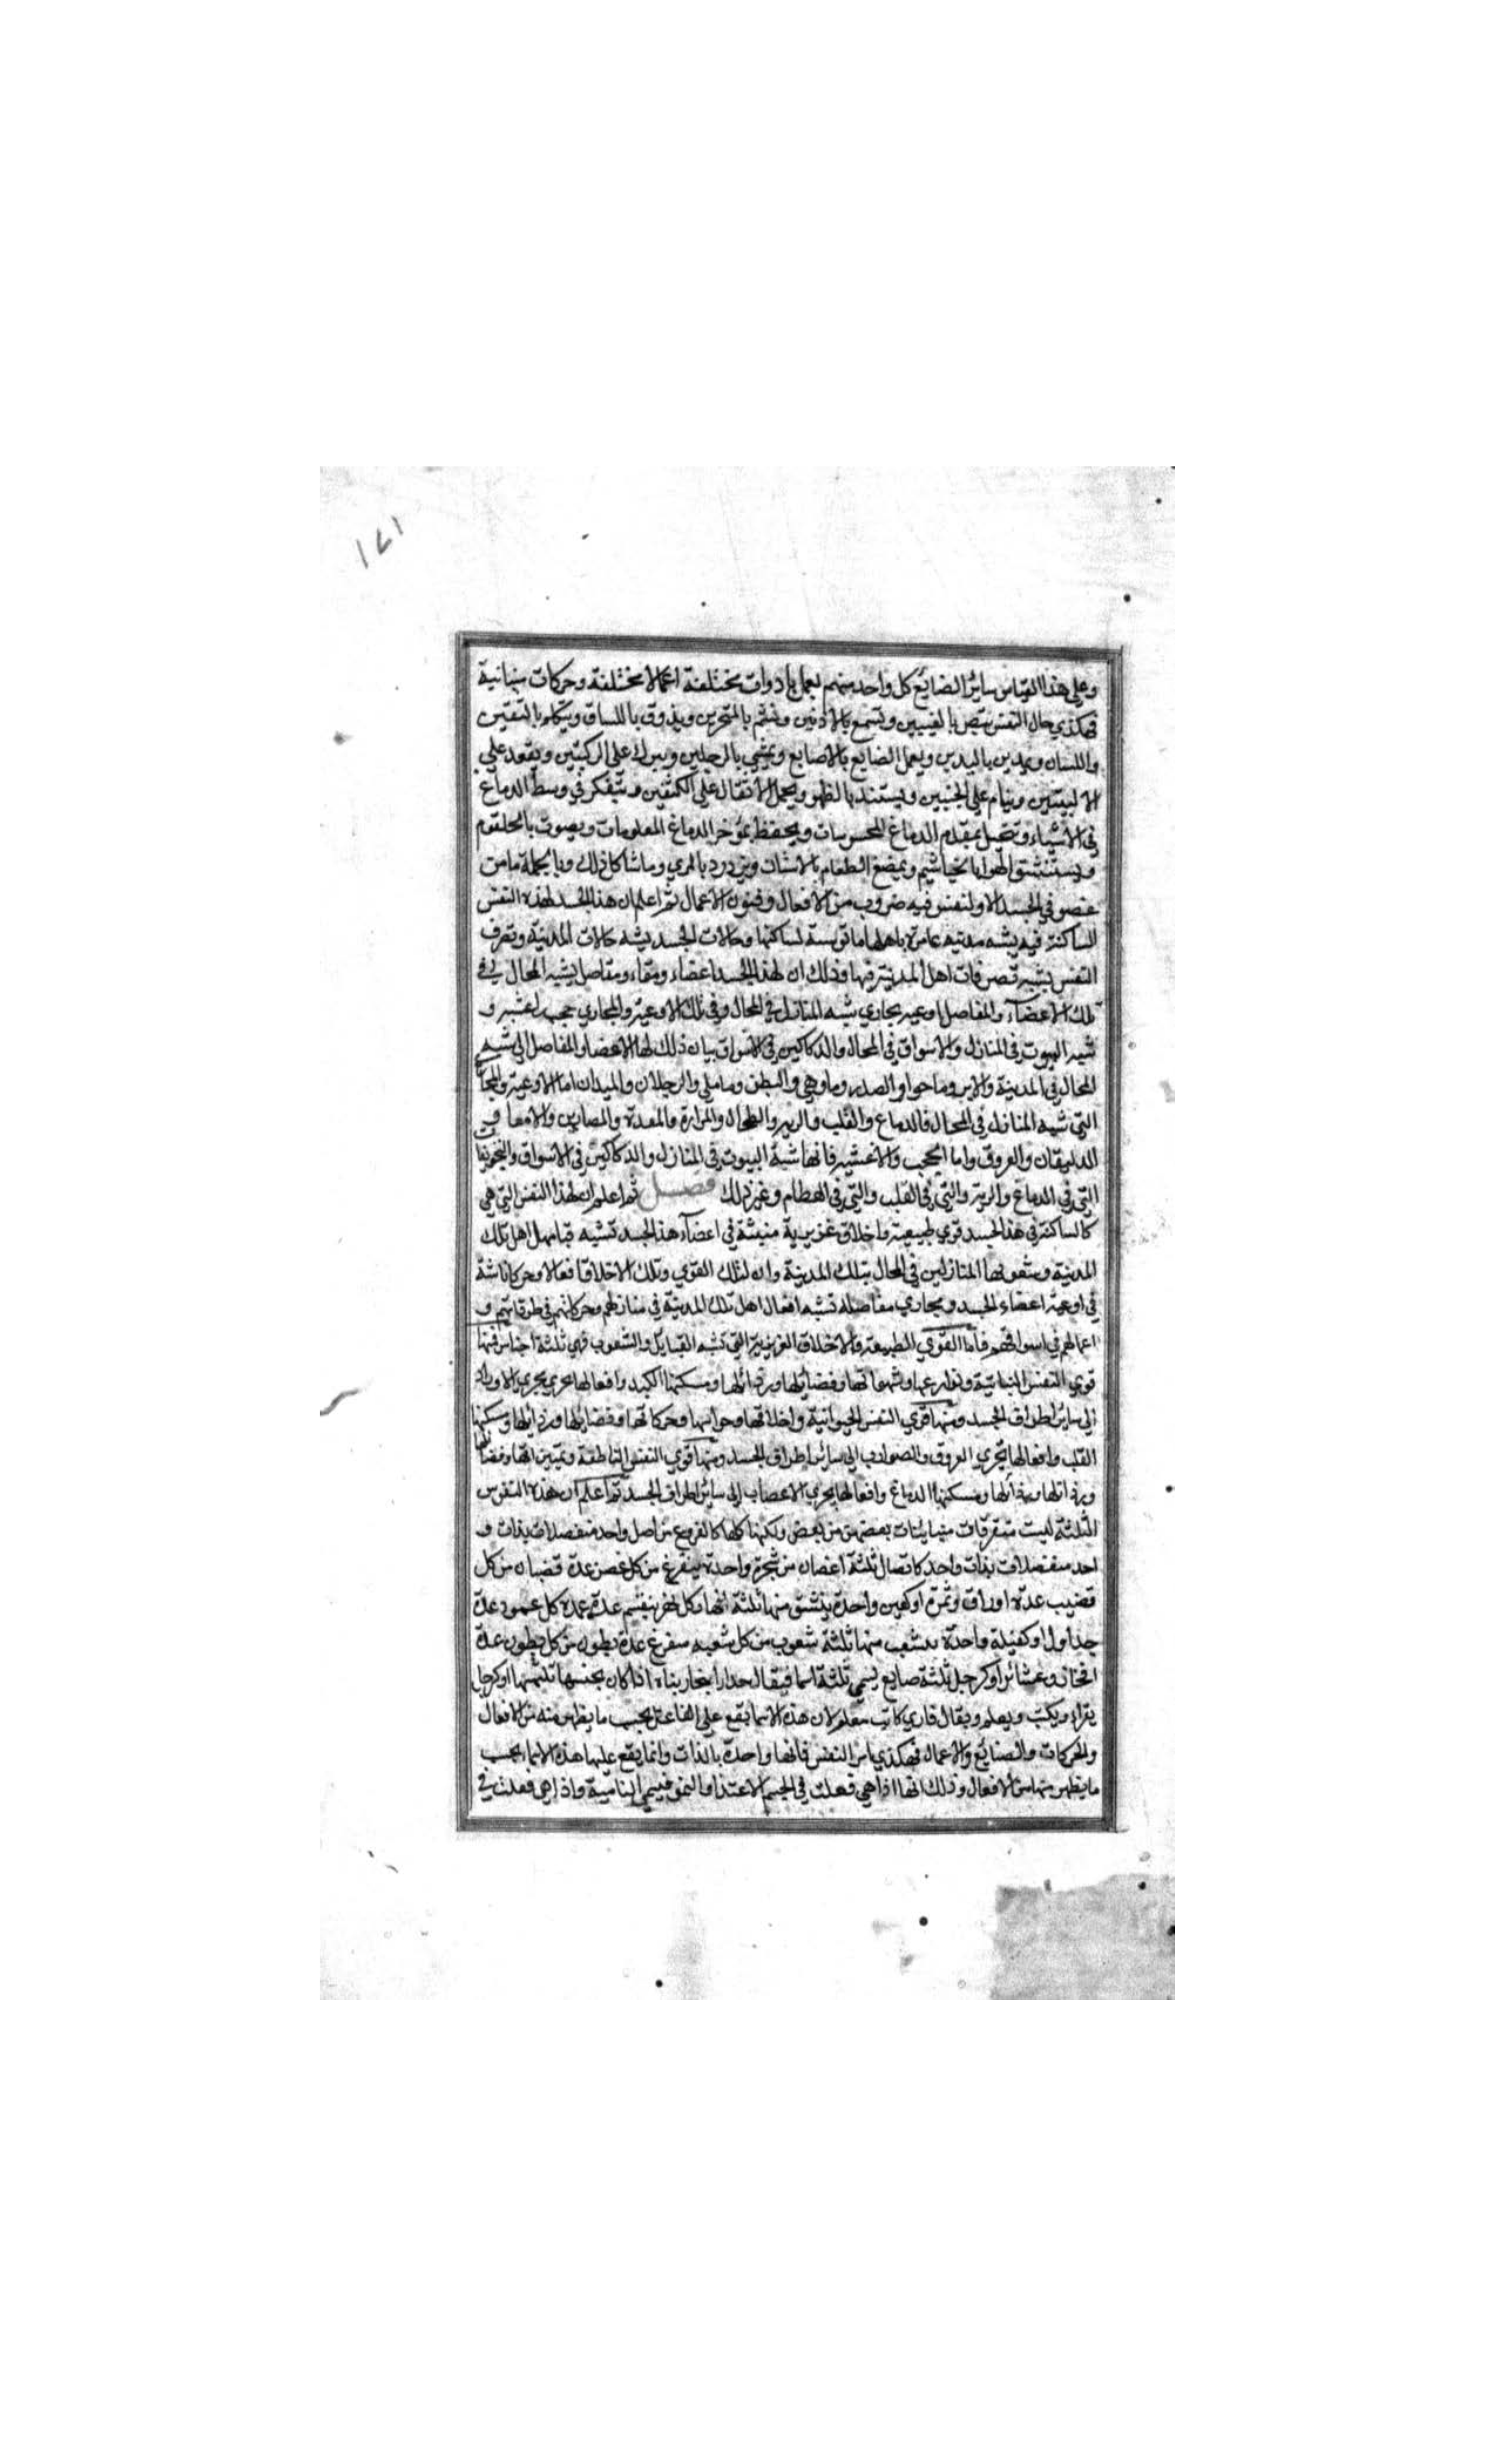 ١٧١
وعلى هذا القياس سائر الصنايع كل واحد منهم يعمل بادوات مختلفة اعمالا مختلفة وحركات متباينة
فهكذي حال النفس تبصر بالعينين وتسمع بالاذنين وتشم بالمنخرين ويذوق باللسان ويتكلم بالشفتين
واللسان ويمدين باليدين ويعمل الصنايع بالاصابع ويمشي بالرجلين ويبرك على الركبتين ويقعد على
الاليتين وينام على الجنبين ويستند بالظهر ويحمل الاثقال على الكتفين ويتفكر في وسط الدماغ
في الاشياء وتتخيل بمقدم الدماغ المحسوسات ويحفظ بموخر الدماغ المعلومات ويصوت بالحلقوم
ويستنشق الهوا بالخياشيم ويمضغ الطعام بالاسنان ويزدرد بالمري وما شاكل ذلك وبالجملة ما من
عضو في الجسد الا وللنفس فيه ضروب من الافعال وفنون الاعمال ثم اعلم ان هذا الجسد لهذه النفس
الساكنة فيه يشبه مدينة عامرة باهلها مانوسة لساكنها وحالات الجسد يشبه حالات المدينة وتصرف
النفس يشبه تصرفات اهل المدينة فيها وذلك ان لهذا الجسد اعضاء ومفاصل يشبه المحال في
تلك الاعضآء والمفاصل اوعية مجاري شبه المنازل في المحال وفي تلك الاوعية والمجاري حجب اغشية و
شبه البيوت في المنازل والاسواق في المحال والدكاكين في الاسواق بيان ذلك لها الاعضا والمفاصل التي شبه
المحال في المدينة والراس وما حوا والصدر وما وهي والبطن وما يلي والرجلان والميدان اما الاوعية والمجا
التي شبه المنازل في المحال فالدماغ والقلب والريه والطحال والمرارة والمعدة والمصارين والامعا و
العروق واما الحجب والاغشية فانها شبه البيوت في المنازل والدكاكين في الاسواق والتجويفات
التي في الدماغ والرية والتي في القلب والتي في العظام وغير ذلك فصل ثم اعلم ان لهذا النفس التي هي
كالساكنة في هذا الجسد قوي طبيعية واخلاق غزيرية منبثة في اعضآء هذا الجسد تشبه قبايل اهل تلك
المدينة وشعوبها المنازلين في المحال بتلك المدينة وان لتلك القوي وتلك الاخلاق افعالا وحركات ناشة
في اوعية اعضاء الجسد ومجاري مفاصله تشبه افعال اهل تلك المدينة في منازلهم وحركاتهم في طرقاتهم و
اعمالهم في اسواقهم فاما القوي الطبيعية والاخلاق الغزيزية التي تشبه القبايل والشعوب فهي ثلثة اجناس فمنها
قوي النفس النباتية ونوازعها وشهواتها وفضائلها ورذائلها ومسكنها الكبد وافعالها يجري مجري الاوراد
الى سائر اطراف الجسد ومنها قوي النفس الحيوانية واخلاقها وحواسها وحركاتها وفضايلها ورذائلها ومسكنها
القلب وافعالها يجري العروق والضوارب الى سائر اطراف الجسد ومنها قوي النفس الناطقة وتمييزاتها وفضائلها
ورذائلها ومسكنها الدماغ وافعالها يجري الاعصاب الى سائر اطراف الجسد ثم اعلم ان هذه النفوس
الثلثة ليست متفرقات متباينات بعضهن من بعض ولكنها كلها كالفروع من اصل واحد متصلات بذات و
احد متصلات بذات واحد كاتصال ثلثة اغصان من شجرة واحدة يتفرغ من كل غصن عدة قضبان من كل
قضيب عدة اوراق وثمرة او كعين واحدة ينشق منها ثلثة انهار كل نهر ينقسم عدة عمدة كل عمود عدة
جداول او كقبيلة واحدة يتشعب منها ثلثة شعوب من كل شعبه يتفرغ عدة بطون من كل بطون عدة
افخاذ وعشائر او كرجل ثلثة صنايع يسمي ثلثة اسما فيقال حدادا نجار بناء اذا كان يحسنها ثلثها او كرجل
يقراء ويكتب ويعلم ويقال قاري كاتب معلم لان هذه الاسما يقع على الفاعل بحسب ما يظهر منه من الافعال
والحركات والصنائع والاعمال فهكذي امر النفس فانها واحدة بالذات وانما يقع عليها هذه الاسماء بحسب
ما يظهر منها من الافعال وذلك انها اذا هي فعلت في الجسم الاغتذا والنمو فيسمي النامية واذا هي فعلت في